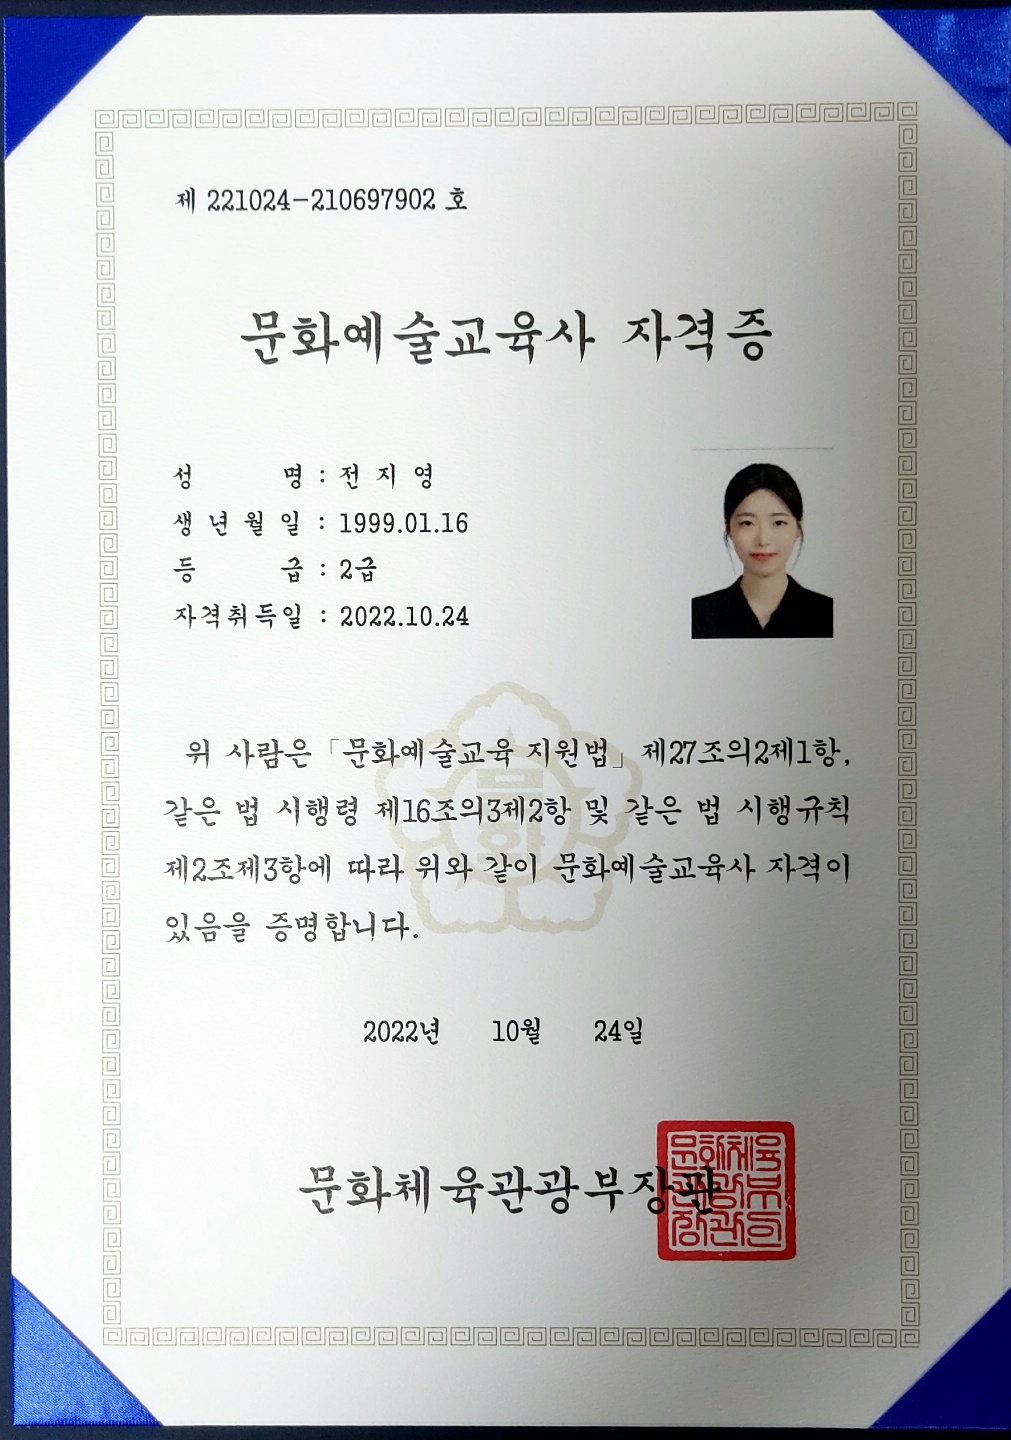 제 221024-210697902 호
문화예술교육사 자격증
성 명 : 전 지 영
생 년 월 일 : 1999.01.16
등 급 : 2급
자격취득일 : 2022.10.24
위 사람은 「문화예술교육 지원법」 제27조의2제1항,
같은 법 시행령 제16조의3제2항 및 같은 법 시행규칙
제2조제3항에 따라 위와 같이 문화예술교육사 자격이
있음을 증명합니다.
2022년 10월 24일
문화체육관광부장관
문화체육
관광부
장관의